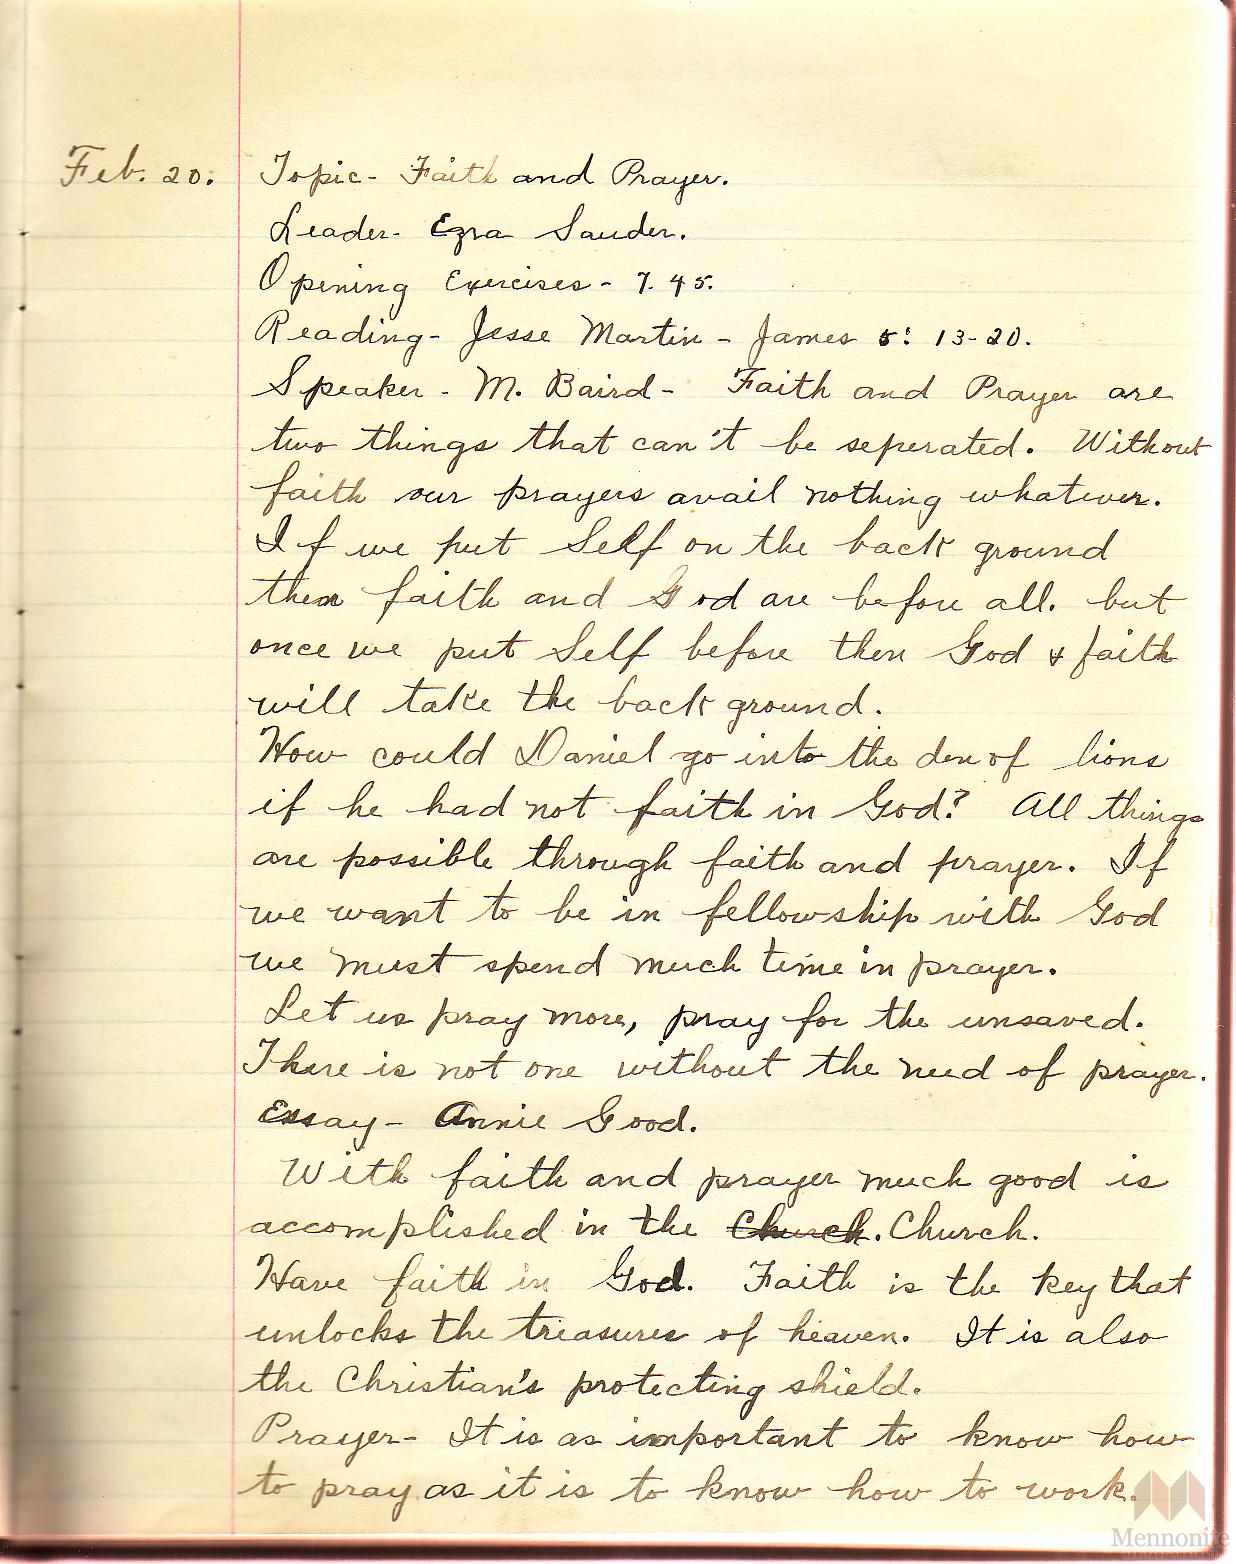 Feb. 20. Topic- Faith and Prayer.
Leader- Ezra Sauder.
Opening Exercises - 7.45.
Reading- Jesse Martin - James 5: 13-20.
Speaker - M. Baird - Faith and Prayer are
two things that can't be seperated. Without
faith our prayers avail nothing whatever.
If we put Self on the back ground
then faith and God are before all. but
once we put Self before then God & faith
will take the back ground.
How could Daniel go into the den of lions
if he had not faith in God? All things
are possible through faith and prayer. If
we want to be in fellowship with God
we must spend much time in prayer.
Let us pray more, pray for the unsaved.
There is not one without the need of prayer.
Essay - Annie Good.
With faith and prayer much good is
accomplished in the Church. Church.
Have faith in God. Faith is the key that
unlocks the treasures of heaven. It is also
the Christian's protecting shield.
Prayer- It is as important to know how
to pray as it is to know how to work.
Mennonite